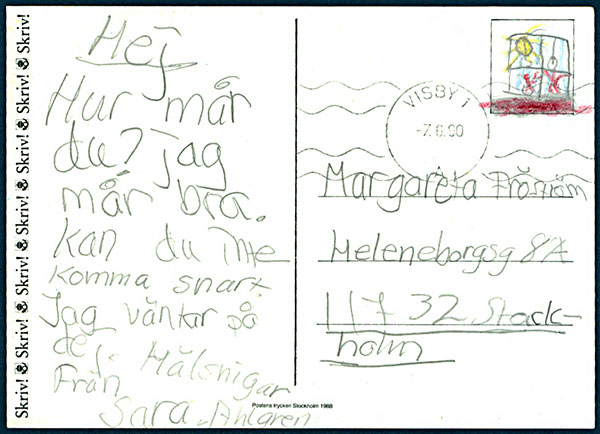 Skriv! Skriv! Skriv! Skriv! Skriv! Skriv! Skriv! Skriv!
Hej
Hur mår
du? jag
mår bra.
kan du inte
komma snart
Jag väntar på
dej. Hälsnigar
Från
Sara Ahlgren
VISBY 1
-7.6.90
Margareta
Heleneborgsg 8A
117 32 Stock-
holm
Postens tryckeri Stockholm 1988